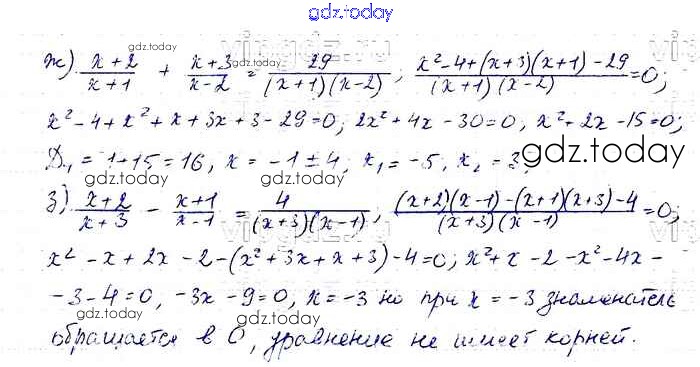 gdz.today
ж) (x+2)/(x+1) + (x+3)/(x-2) = 29/((x+1)(x-2)); (x²-4+(x+3)(x+1)-29)/((x+1)(x-2)) = 0;
x²-4+x²+x+3x+3-29=0; 2x²+4x-30=0, x²+2x-15=0;
D₁=1+15=16, x=-1±4, x₁=-5, x₂=3;
gdz.today
з) (x+2)/(x+3) - (x+1)/(x-1) = 4/((x+3)(x-1)); ((x+2)(x-1)-(x+1)(x+3)-4)/((x+3)(x-1)) = 0;
x²-x+2x-2-(x²+3x+x+3)-4=0; x²+x-2-x²-4x-
-3-4=0, -3x-9=0, x=-3 но при x=-3 знаменатель
обращается в 0, уравнение не имеет корней.
gdz.today
gdz.today
gdz.today
gdz.today
gdz.today
gdz.today
gdz.today